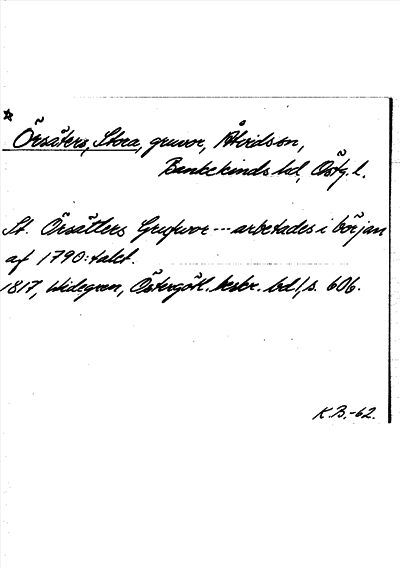 Örsäters, Stora, gruvor, Åtvidson,
Bankekinds hd, Östg. l.
St. Örsätters Grufwor --- arbetades i början
af 1790:talet.
1817, Widegren, Östergötl. beskr. bd 1, s. 606.
K.B.-62.